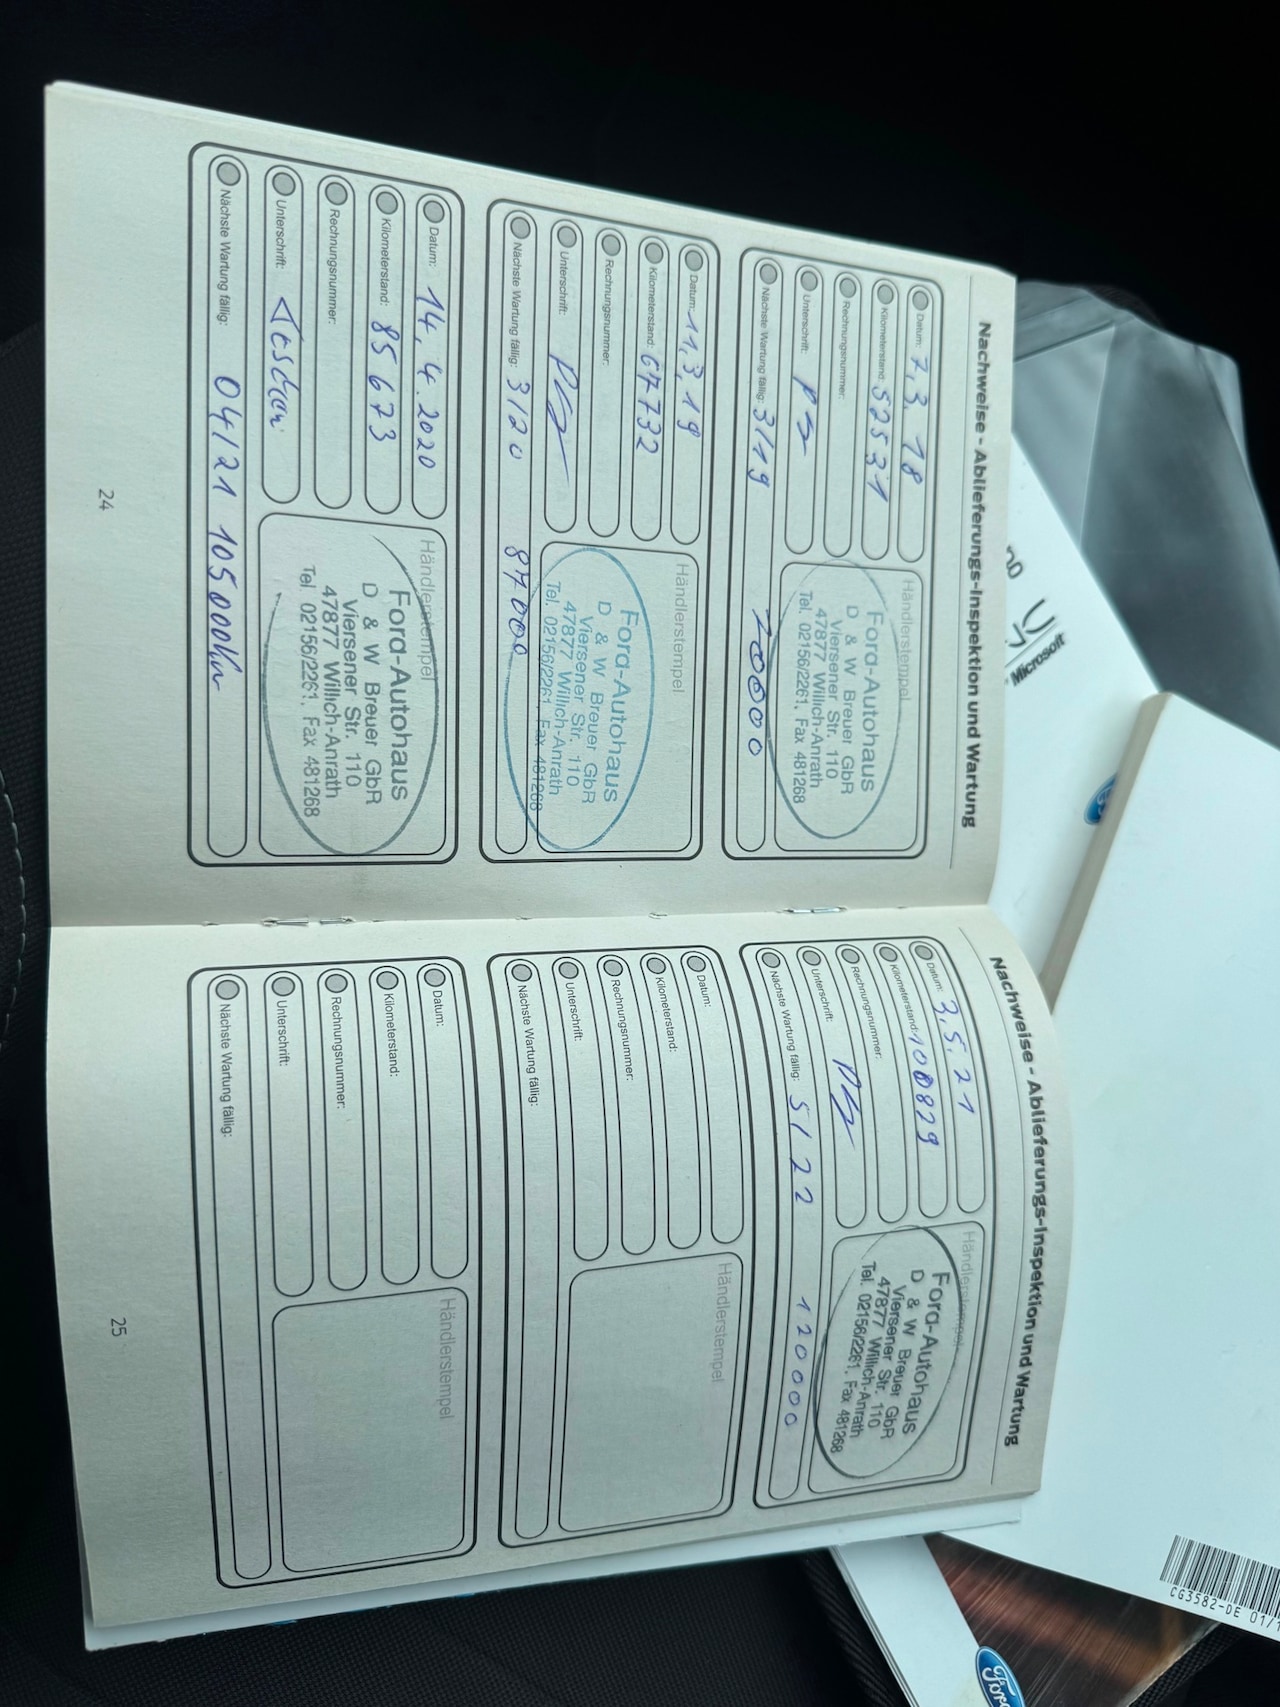 Nachweise - Ablieferungs-Inspektion und Wartung
Datum: 7,3, 18
Kilometerstand: 52531
Rechnungsnummer:
Unterschrift:
Nächste Wartung fällig: 3/19 70000
Händlerstempel
Ford-Autohaus
D & W Breuer GbR
Viersener Str. 110
47877 Willich-Anrath
Tel. 02156/2261, Fax 481268
Datum: 11,3,19
Kilometerstand: 67732
Rechnungsnummer:
Unterschrift:
Nächste Wartung fällig: 3/20 87000
Händlerstempel
Ford-Autohaus
D & W Breuer GbR
Viersener Str. 110
47877 Willich-Anrath
Tel. 02156/2261, Fax 481268
Datum: 14.4.2020
Kilometerstand: 85673
Rechnungsnummer:
Unterschrift:
Nächste Wartung fällig: 04/21 105000km
Händlerstempel
Ford-Autohaus
D & W Breuer GbR
Viersener Str. 110
47877 Willich-Anrath
Tel. 02156/2261, Fax 481268
24
Nachweise - Ablieferungs-Inspektion und Wartung
Datum: 3,5,21
Kilometerstand: 108829
Rechnungsnummer:
Unterschrift:
Nächste Wartung fällig: 5/22 120000
Händlerstempel
Ford-Autohaus
D & W Breuer GbR
Viersener Str. 110
47877 Willich-Anrath
Tel. 02156/2261, Fax 481268
Datum:
Kilometerstand:
Rechnungsnummer:
Unterschrift:
Nächste Wartung fällig:
Händlerstempel
Datum:
Kilometerstand:
Rechnungsnummer:
Unterschrift:
Nächste Wartung fällig:
Händlerstempel
25
Microsoft
CG3582-DE 01/1
Ford